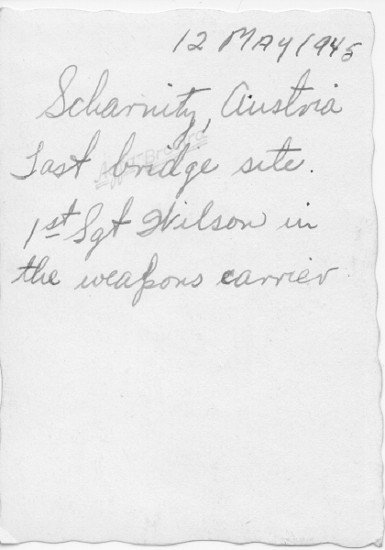 12 MAY 1945
Scharnitz, Austria
Last bridge site.
1st Sgt Wilson in
the weapons carrier